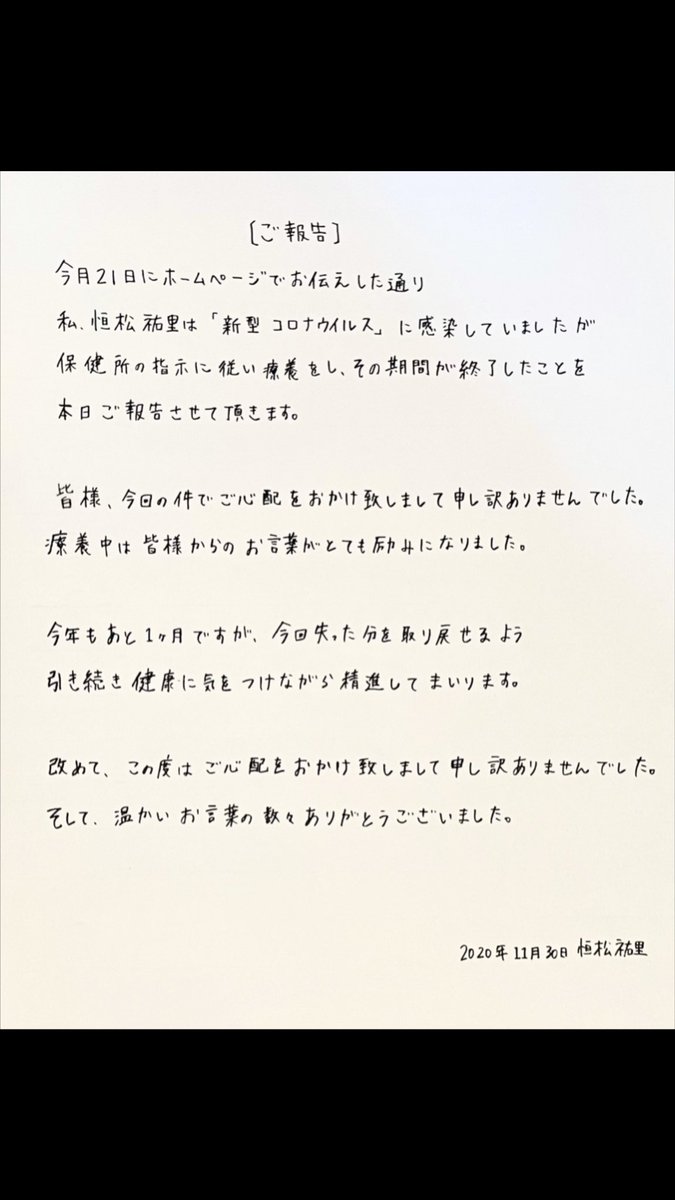 [ご報告]
今月21日にホームページでお伝えした通り
私、恒松祐里は「新型コロナウイルス」に感染していましたが
保健所の指示に従い療養をし、その期間が終了したことを
本日ご報告させて頂きます。
皆様、今回の件でご心配をおかけ致しまして申し訳ありませんでした。
療養中は皆様からのお言葉がとても励みになりました。
今年もあと1ヶ月ですが、今回失った分を取り戻せるよう
引き続き健康に気をつけながら精進してまいります。
改めて、この度はご心配をおかけ致しまして申し訳ありませんでした。
そして、温かいお言葉の数々ありがとうございました。
2020年11月30日 恒松祐里